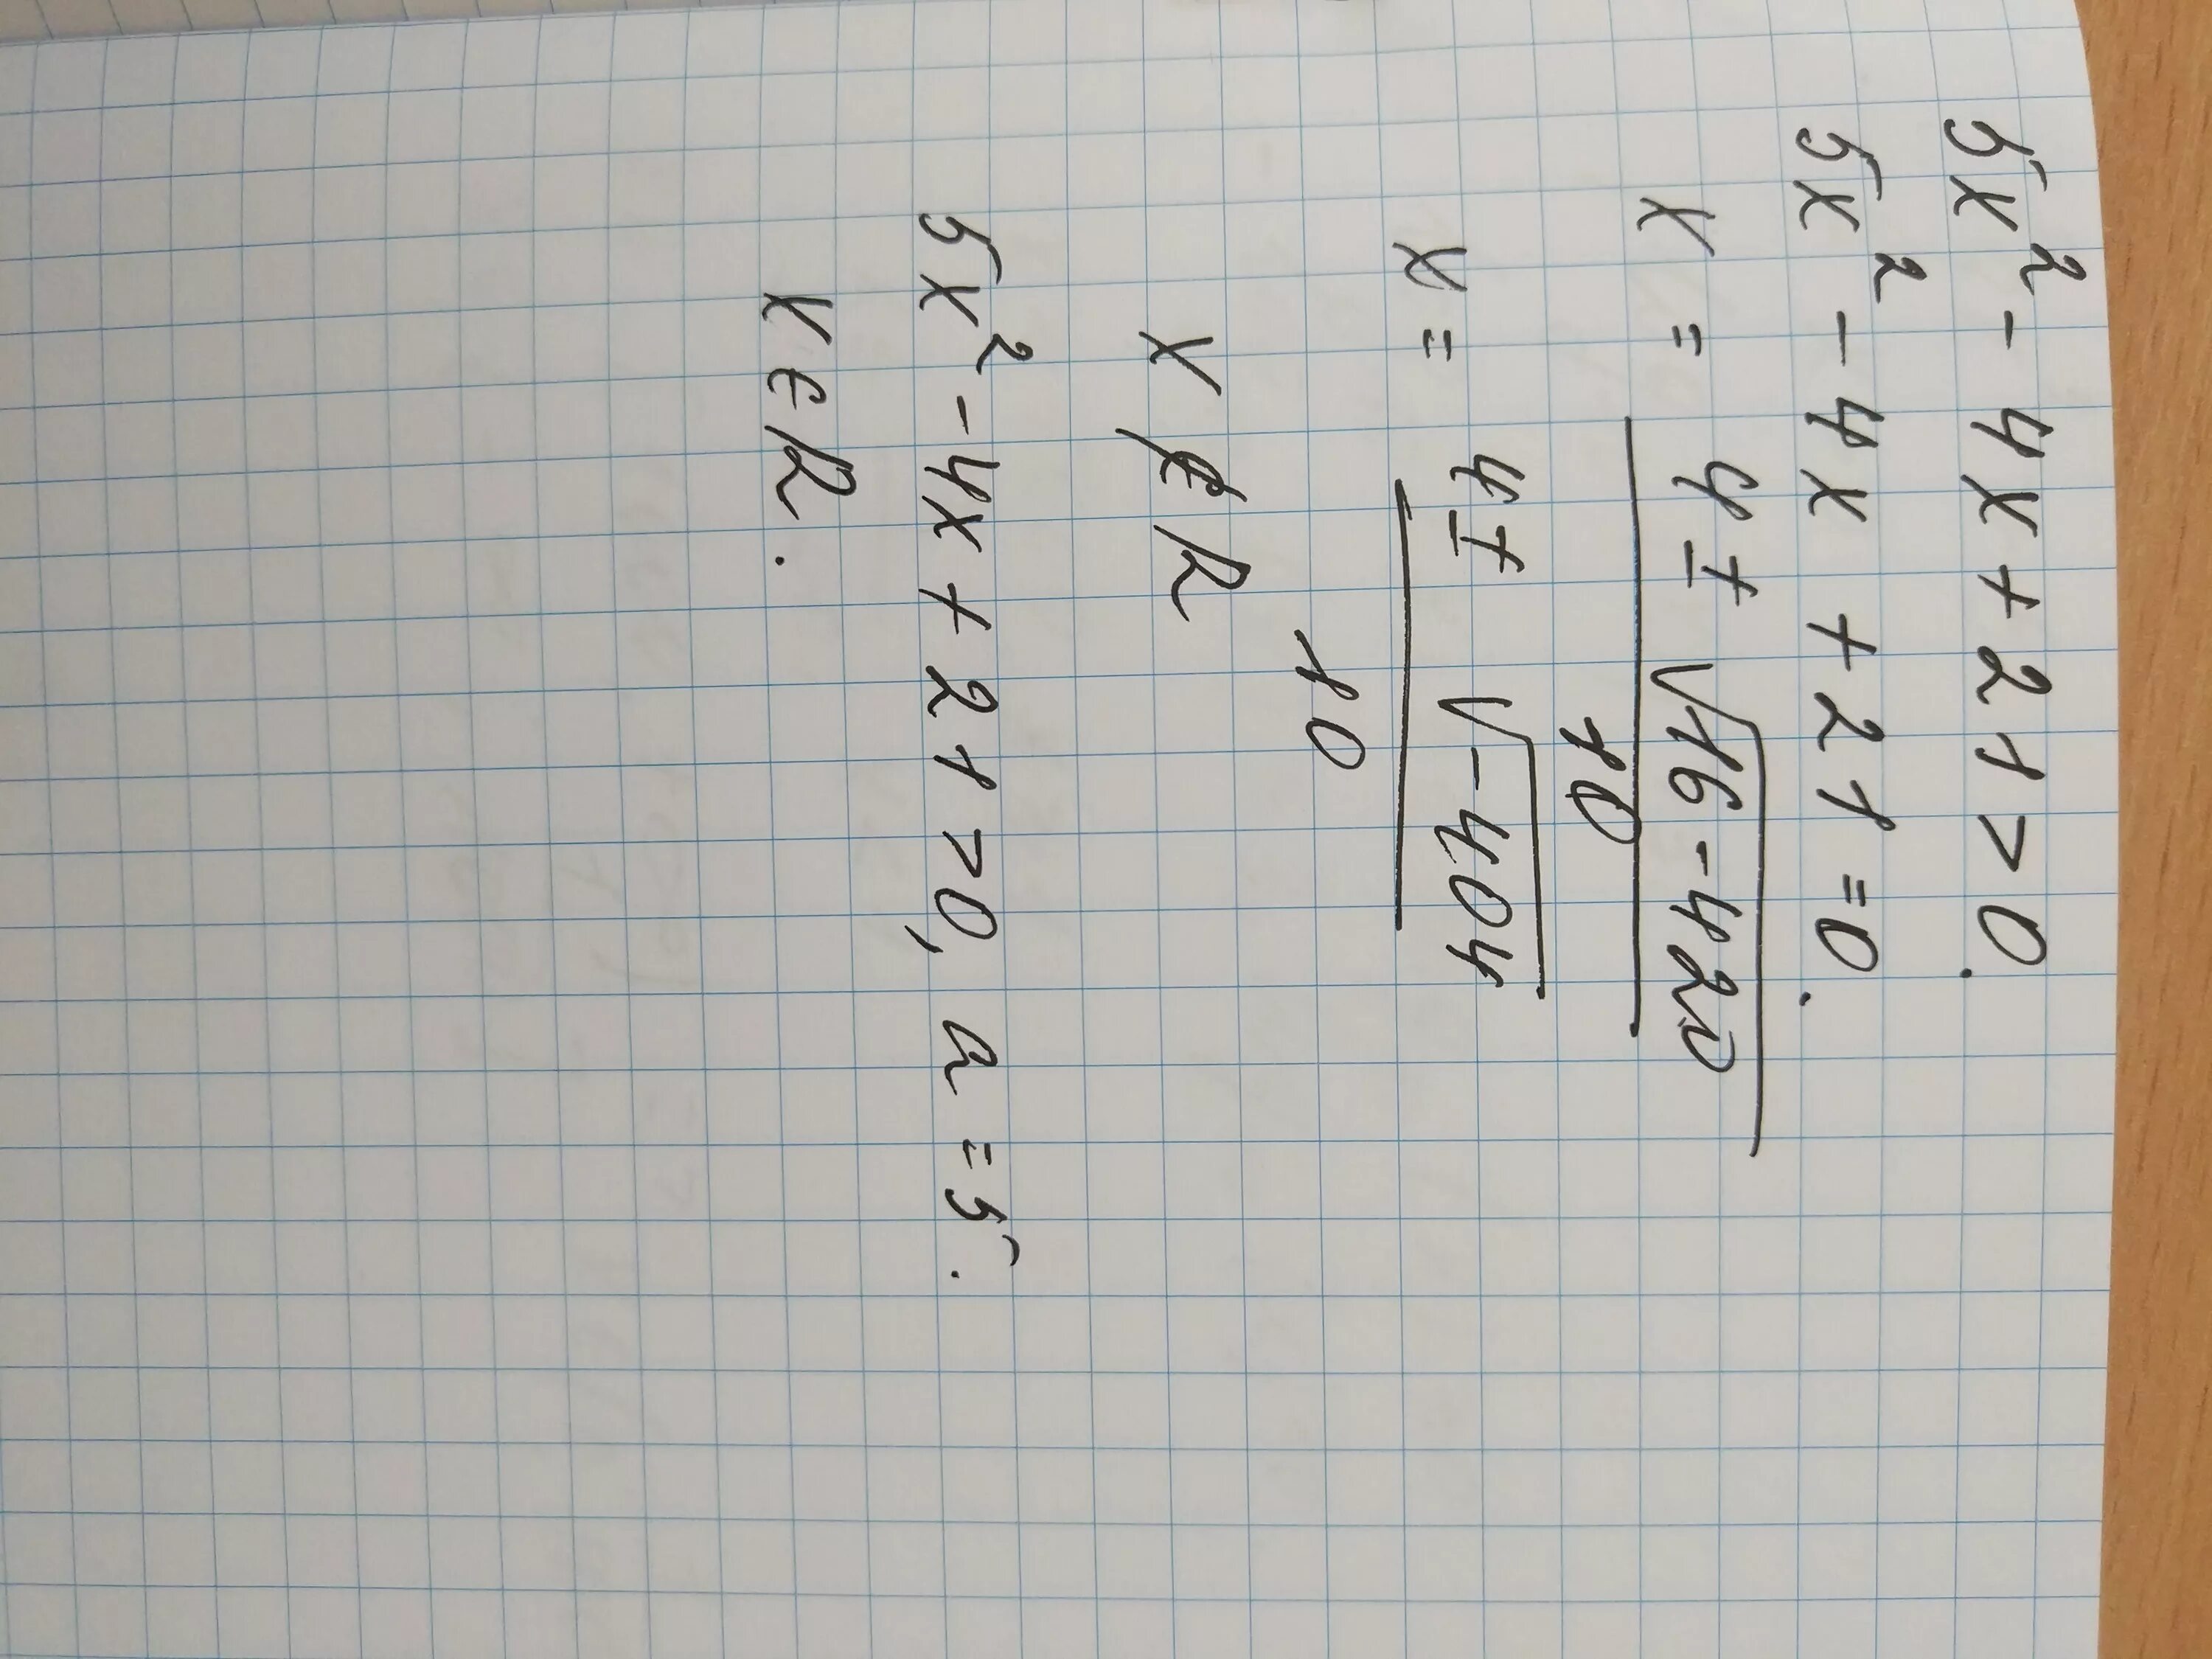 5x² - 4x + 21 > 0.
5x² - 4x + 21 = 0.
x = (4 ± √(16 - 420)) / 10
x = (4 ± √(-404)) / 10
x ∉ R
5x² - 4x + 21 > 0, a = 5.
x ∈ R.